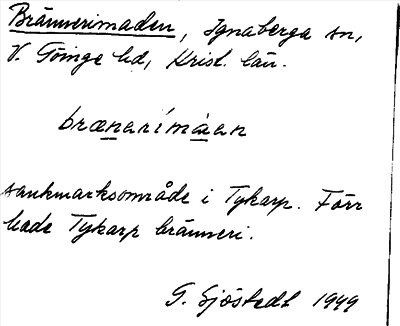 Brännerimaden, Ignaberga sn,
V. Göinge hd, Krist. län.
brænarimáan
sankmarksområde i Tykarp. Förr
hade Tykarp bränneri.
G. Sjöstedt 1949